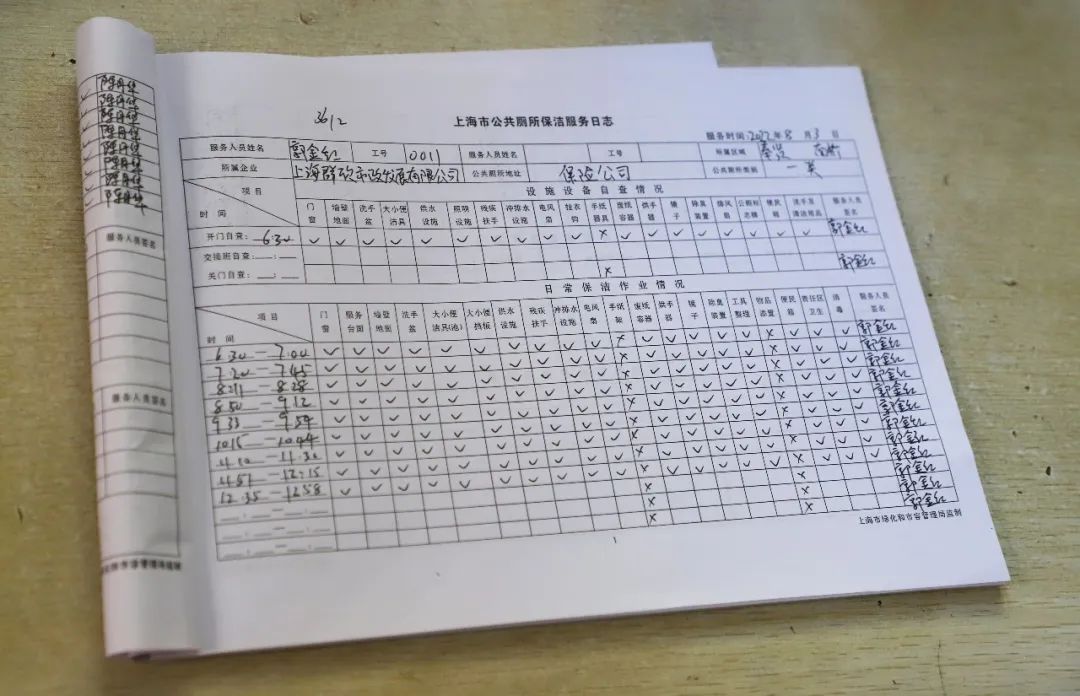 陈丹华
陈丹华
陈丹华
陈丹华
陈丹华
陈丹华
陈丹华
陈丹华
服务人员签名
服务人员签名
3612
上海市公共厕所保洁服务日志
服务时间:2022年8月3日
服务人员姓名 郭金红 工号 0011 服务人员姓名 工号 所属区域 奉贤 南桥
所属企业 公共厕所地址 保险公司 公共厕所类别 一类
项目 设施设备自查情况
时间 门窗 墙壁地面 洗手盆 大小便洁具 供水设施 照明设施 残疾扶手 冲排水设施 电风扇 挂衣钩 手纸器具 废纸容器 烘手器 镜子 除臭装置 排风扇 公厕标志牌 便民箱 服务人员签名
开门自查: 6:30 ✓ ✓ ✓ ✓ ✓ ✓ ✓ ✓ ✓ ✓ × ✓ ✓ ✓ ✓ ✓ ✓ ✓ ✓ 郭金红
交接班自查: 郭金红
关门自查: ×
日常保洁作业情况
项目
时间 门窗 服务台面 墙壁地面 洗手盆 大小便洁具(池) 大小便挡板 供水设施 残疾扶手 冲排水设施 电风扇 手纸架 废纸容器 烘手器 镜子 除臭装置 工具整理 物品添置 便民箱 责任区卫生 消毒 服务人员签名
6:30—7:00 郭金红
7:20—7:45 郭金红
8:11—8:28 郭金红
8:50—9:12 郭金红
9:33—9:54 郭金红
10:15—10:44 郭金红
郭金红
郭金红
12:35—12:58 郭金红
1
上海市绿化和市容管理局监制